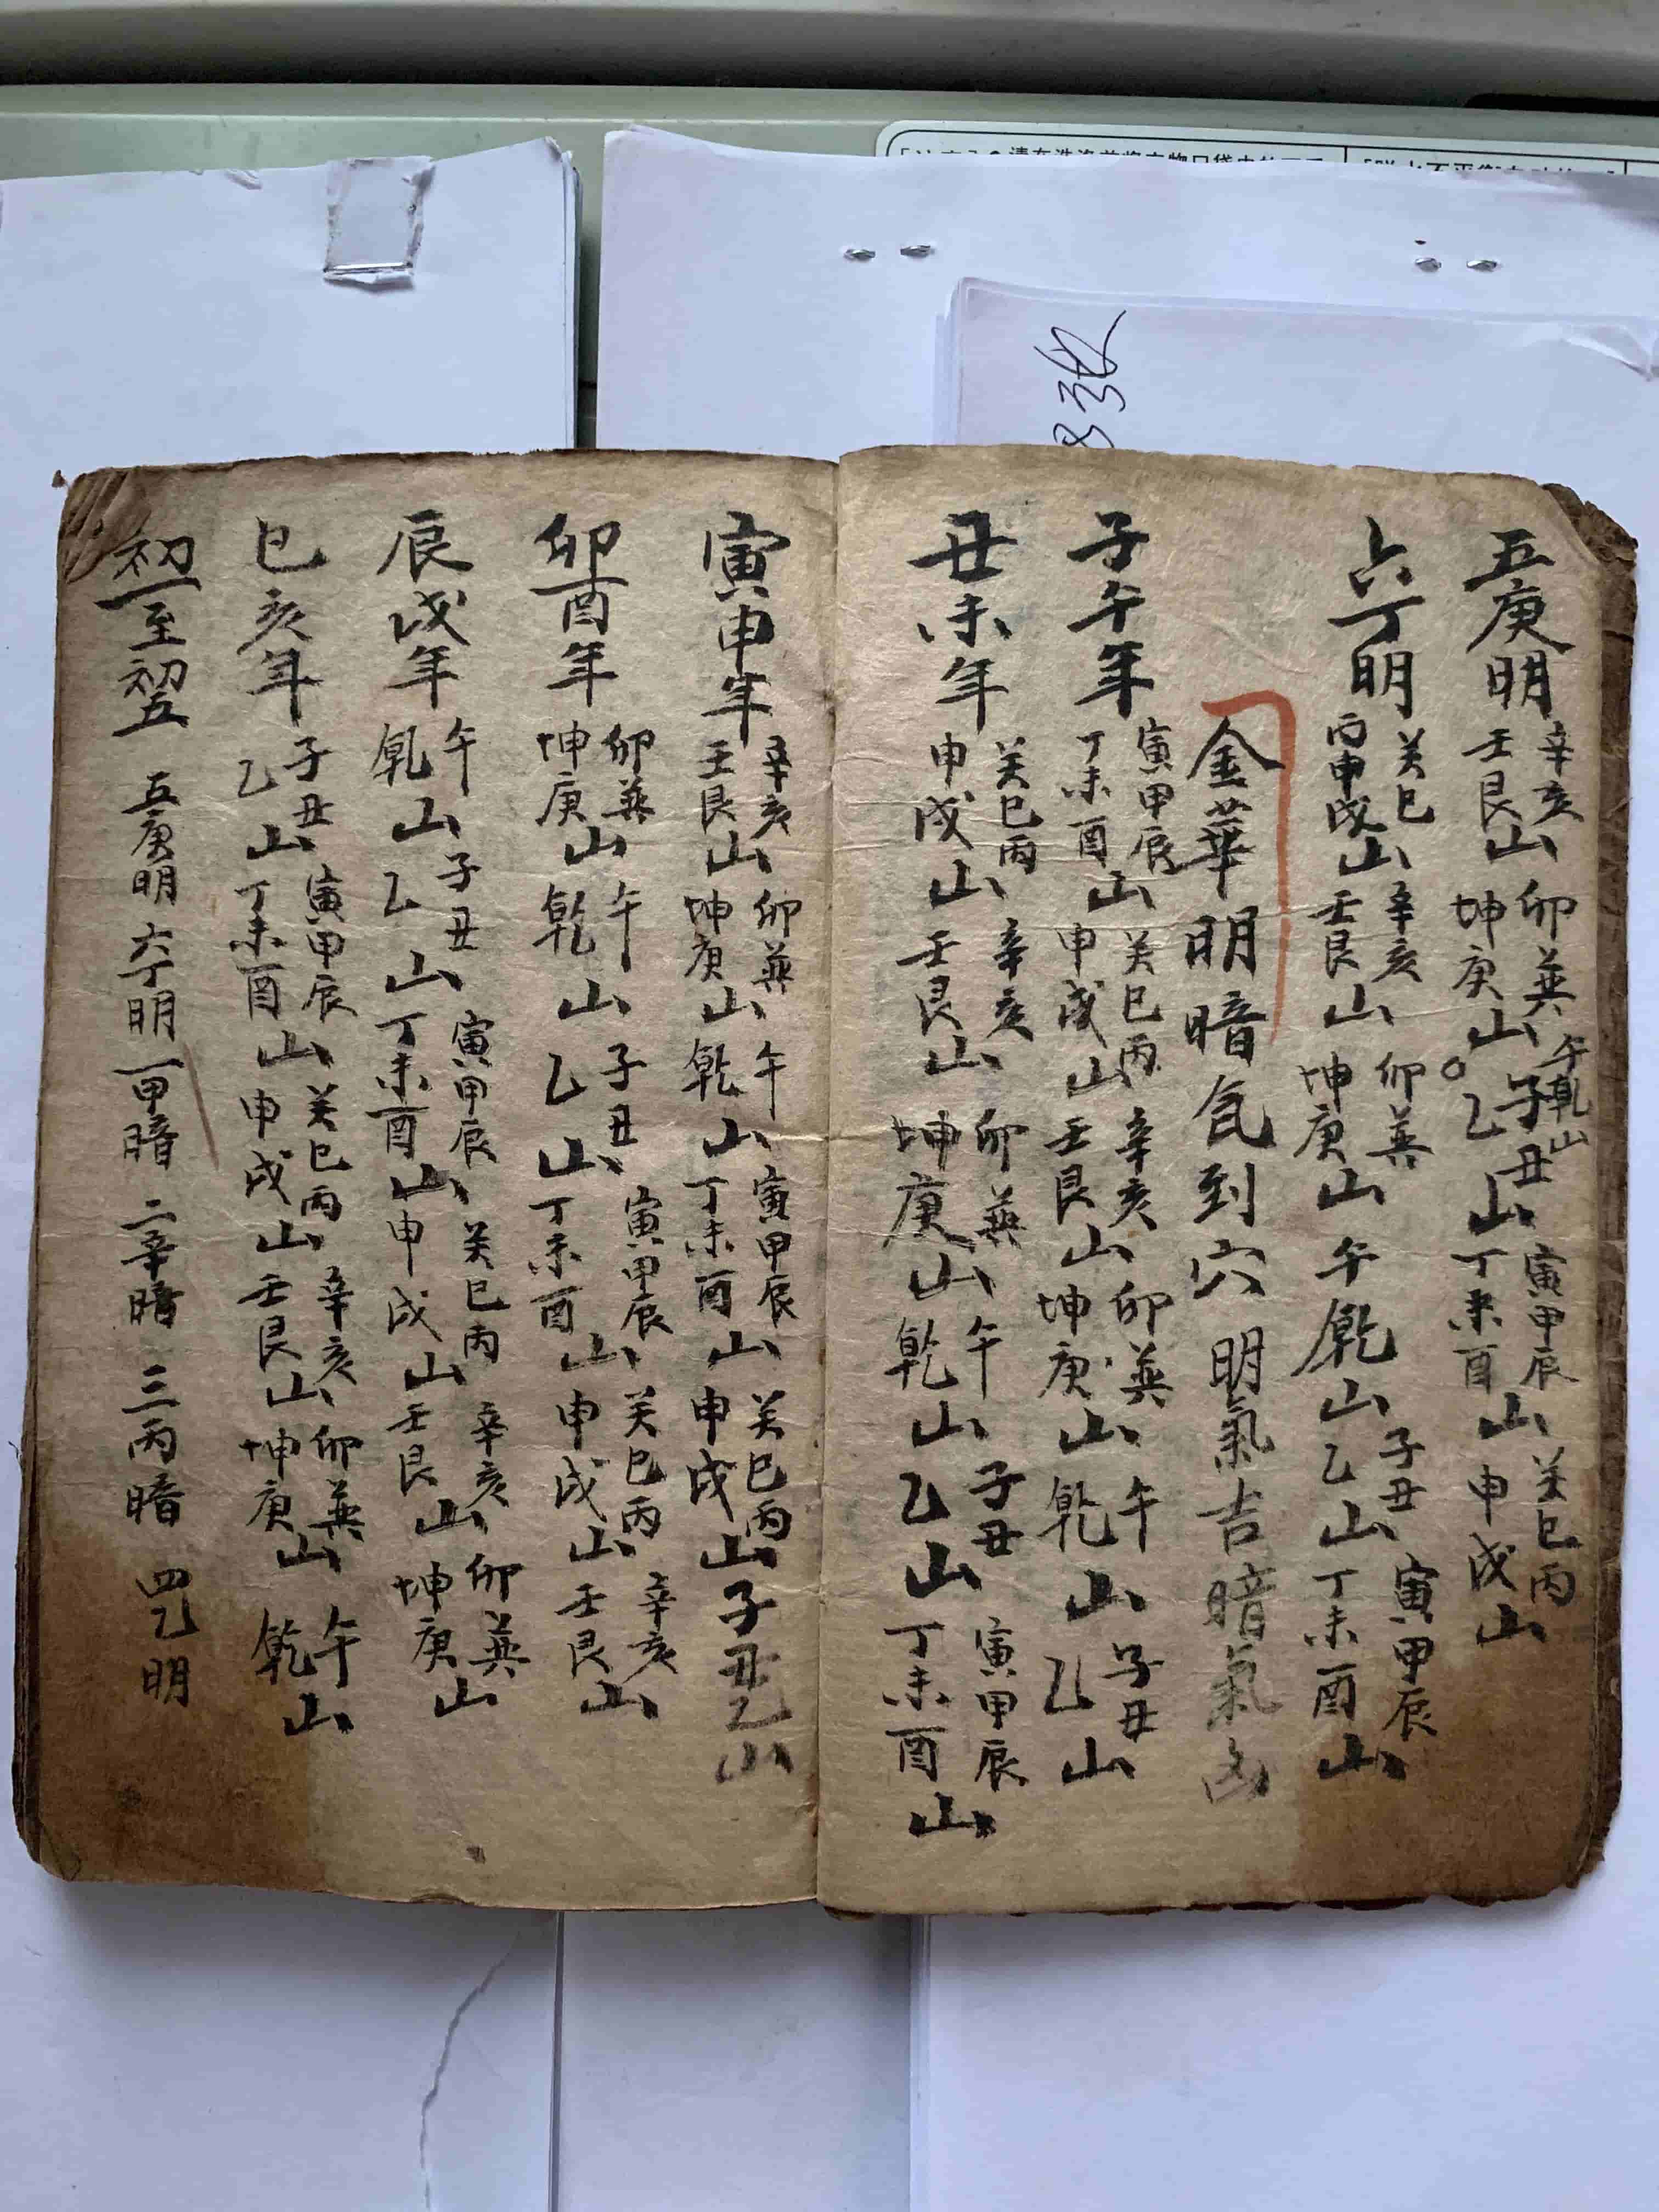 五庚明 辛亥壬艮山 卯巽坤庚山 午乾山 子丑乙山 寅甲辰丁未酉山 癸巳丙申戌山
六丁明 癸巳丙申戌山 辛亥壬艮山 卯巽坤庚山 午乾山 子丑乙山 寅甲辰丁未酉山
金華明暗氕到穴 明氣吉暗氣凶
子午年 寅甲辰丁未酉山 癸巳丙申戌山 辛亥壬艮山 卯巽坤庚山 午乾山 子丑乙山
丑未年 癸巳丙申戌山 辛亥壬艮山 卯巽坤庚山 午乾山 子丑乙山 寅甲辰丁未酉山
寅申年 辛亥壬艮山 卯巽坤庚山 午乾山 寅甲辰丁未酉山 癸巳丙申戌山 子丑乙山
卯酉年 卯巽坤庚山 午乾山 子丑乙山 寅甲辰丁未酉山 癸巳丙申戌山 辛亥壬艮山
辰戌年 午乾山 子丑乙山 寅甲辰丁未酉山 癸巳丙申戌山 辛亥壬艮山 卯巽坤庚山
巳亥年 子丑乙山 寅甲辰丁未酉山 癸巳丙申戌山 辛亥壬艮山 卯巽坤庚山 午乾山
初一至初五 五庚明 六丁明 一甲暗 二辛暗 三丙暗 四乙明